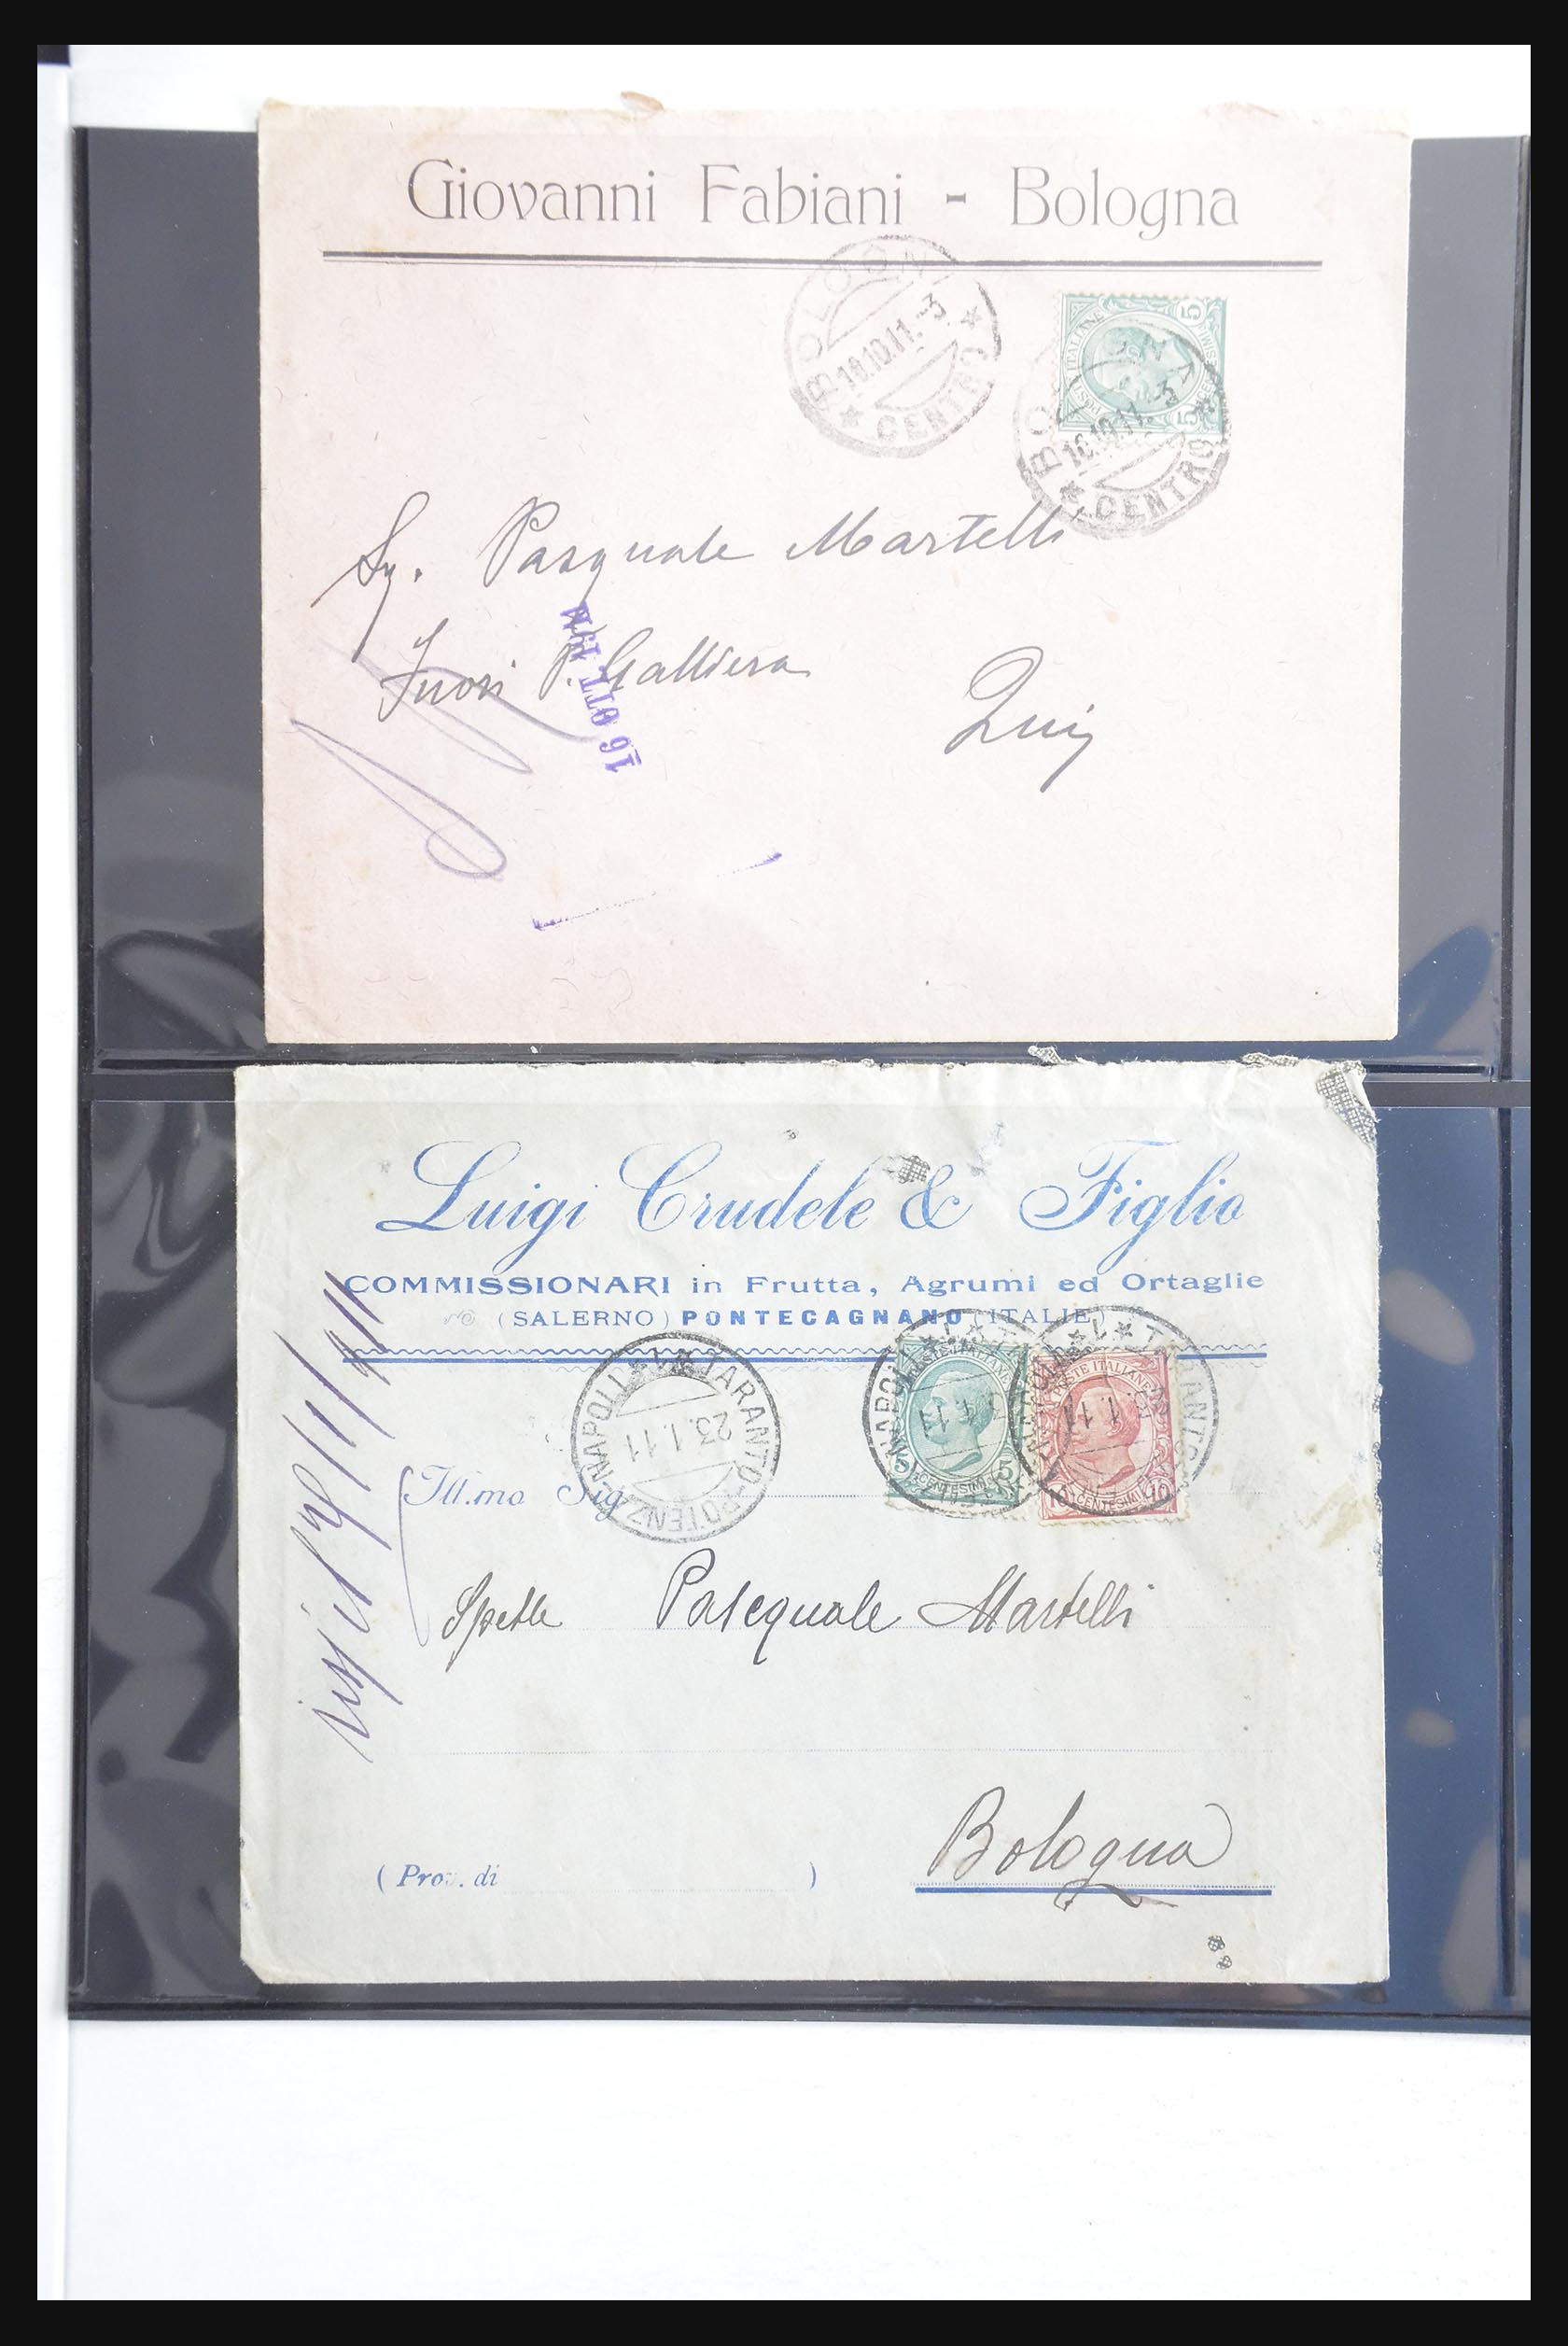 Giovanni Fabiani - Bologna
BOLOGNA
18.10.11.-3
★ CENTRO ★
POSTE ITALIANE
5 CENTESIMI 5
BOLOGNA
16.10.11.-3
★ CENTRO ★
Sg. Pasquale Martelli
Fuori P. Galliera
16 OTT. 1911
Qui
Luigi Crudele & Figlio
COMMISSIONARI in Frutta, Agrumi ed Ortaglie
(SALERNO) PONTECAGNANO (ITALIE)
TARANTO-POTENZA-NAPOLI ★1★
23.1.11
POSTE ITALIANE
5 CENTESIMI 5
NAPOLI ★1★
23.1.11
POSTE ITALIANE
10 CENTESIMI 10
TARANTO ★1★
23.1.11
Ill.mo Sig
Spett.le Pasequale Martelli
Bologna
( Prov. di )